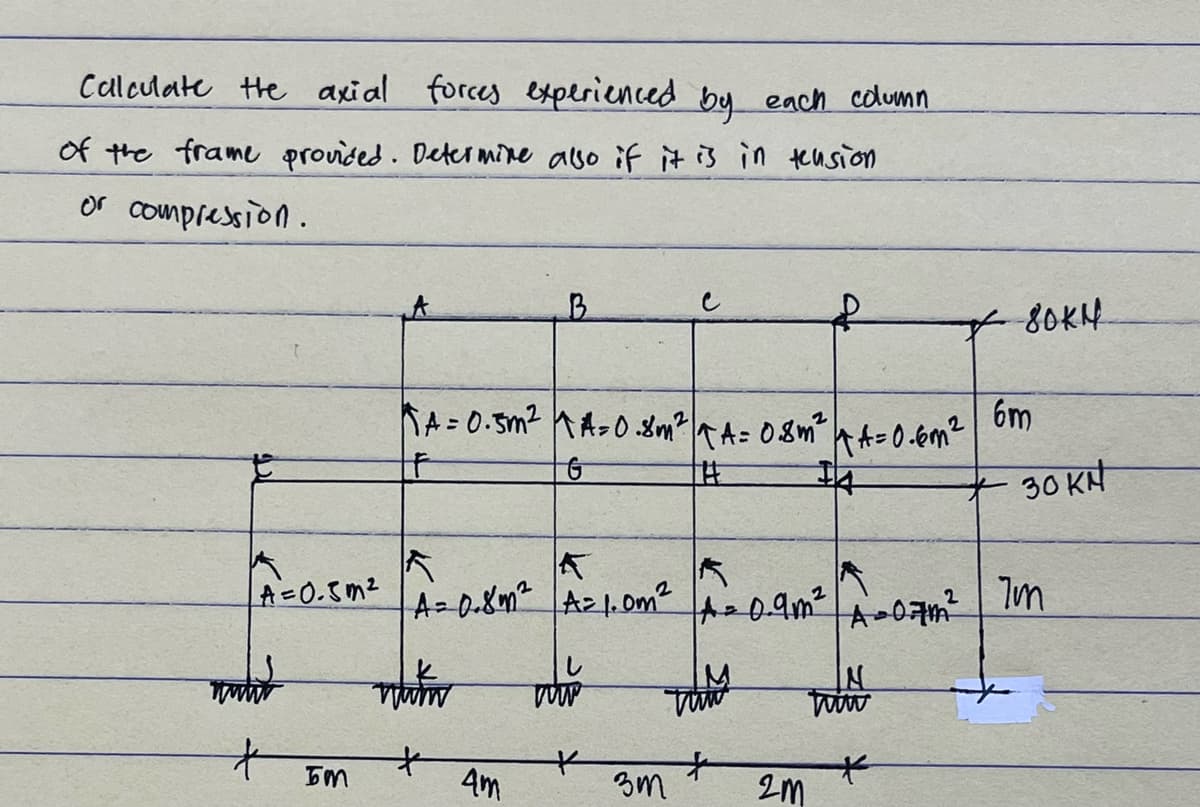 Calculate the axial forces experienced by each column
of the frame provided. Determine also if it is in tension
or compression.
A B C D 80KN
A = 0.5m² A=0.8m² A= 0.8m² A=0.6m² 6m
E F G H I 30 KN
A=0.5m² A= 0.8m² A=1.0m² A= 0.9m² A=0.7m² 7m
J K L M N
5m 4m 3m 2m